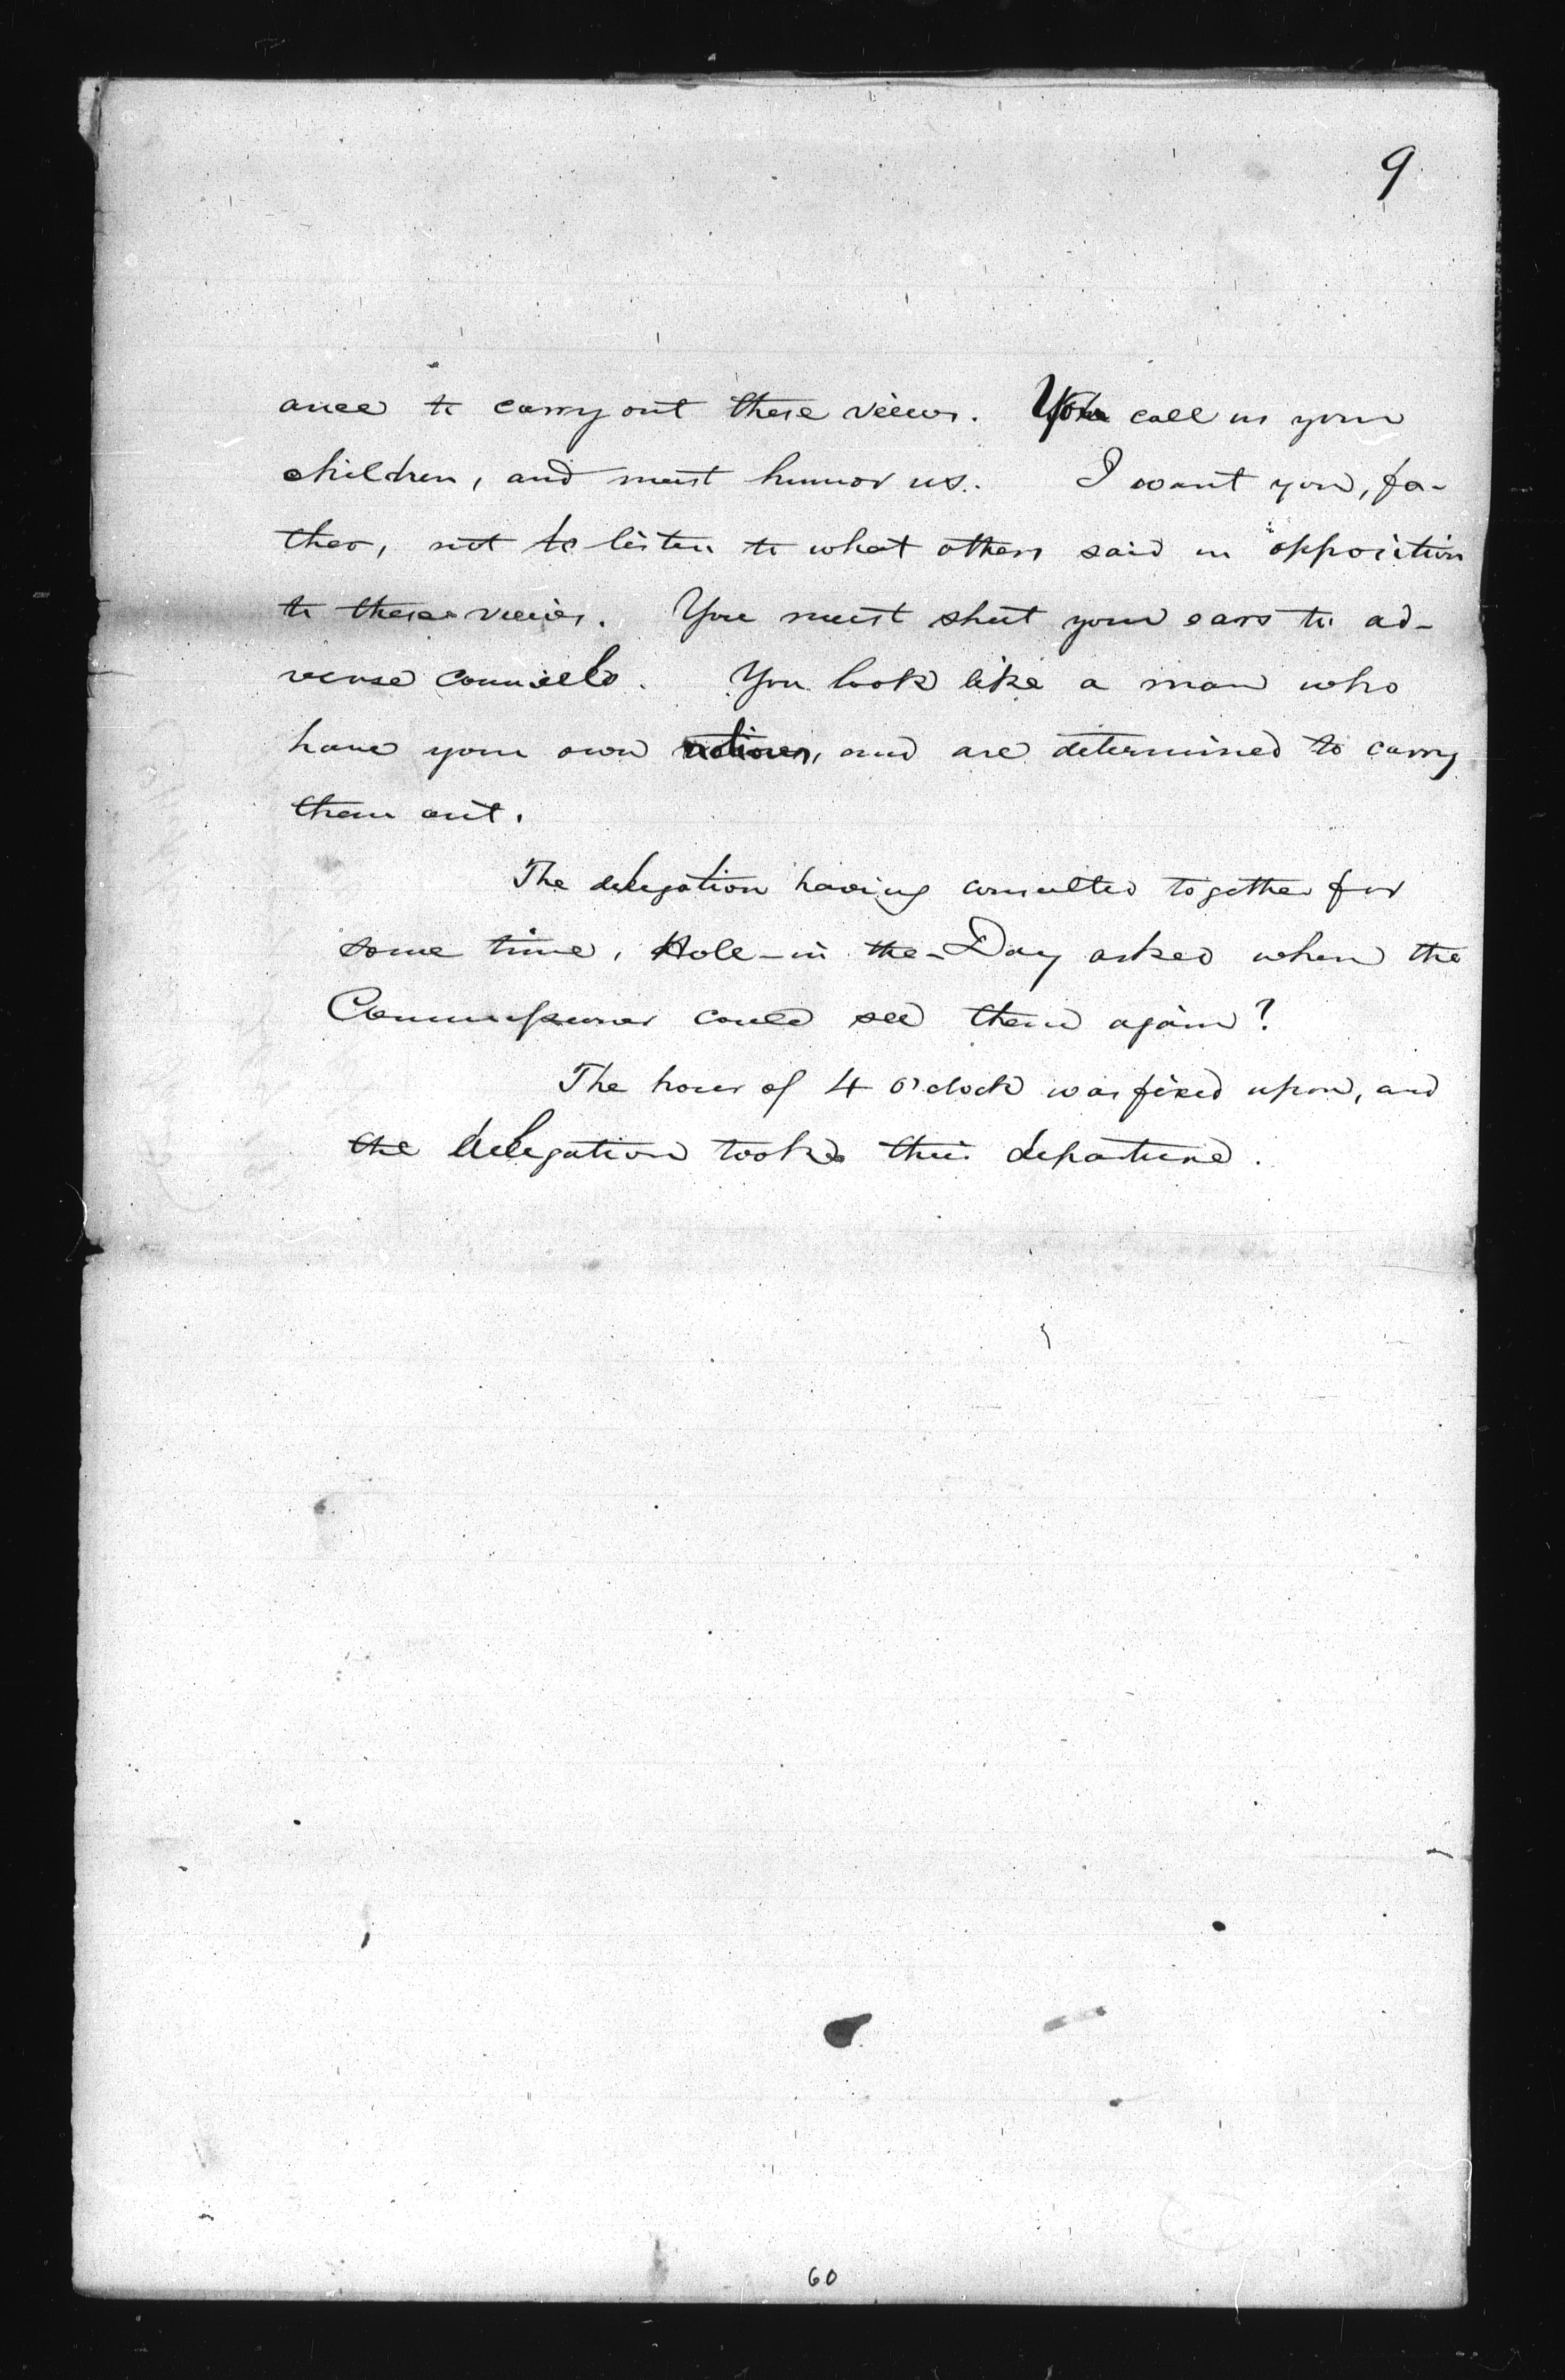 9
ance to carry out these views. You call us your
children, and must humor us. I want you, fa-
ther, not to listen to what others said in opposition
to these views. You must shut your ears to ad-
verse councils. You look like a man who
have your own notions, and are determined to carry
them out.
The delegation having consulted together for
some time, Hole-in the-Day asked when the
Commissioner could see them again?
The hour of 4 o'clock was fixed upon, and
the delegation took their departure.
60